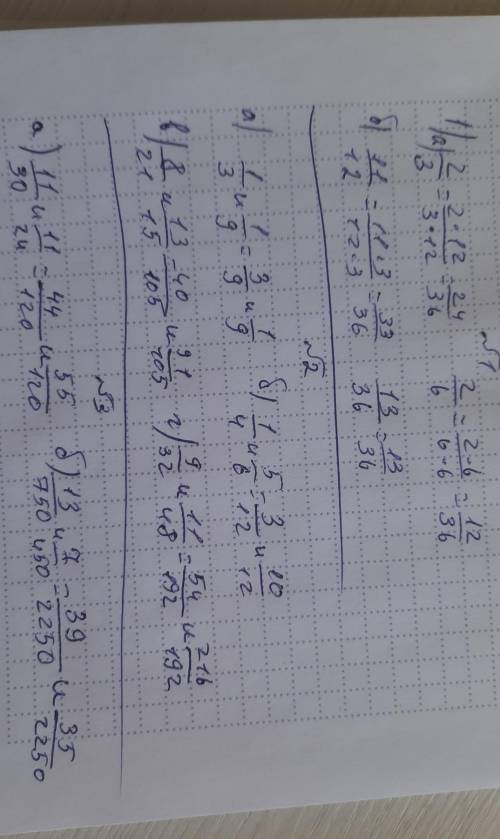 №1
1) а) 2/3 = 2·12/3·12 = 24/36 2/6 = 2·6/6·6 = 12/36
б) 11/12 = 11·3/12·3 = 33/36 13/36 = 13/36
№2
а) 1/3 и 1/9 = 3/9 и 1/9 б) 1/4 и 5/6 = 3/12 и 10/12
в) 8/21 и 13/15 = 40/105 и 91/105 г) 9/32 и 11/48 = 54/192 и /192
№3
а) 11/30 и 11/24 = 44/120 и 55/120 б) 13/750 и 7/450 = 39/2250 и 35/2250